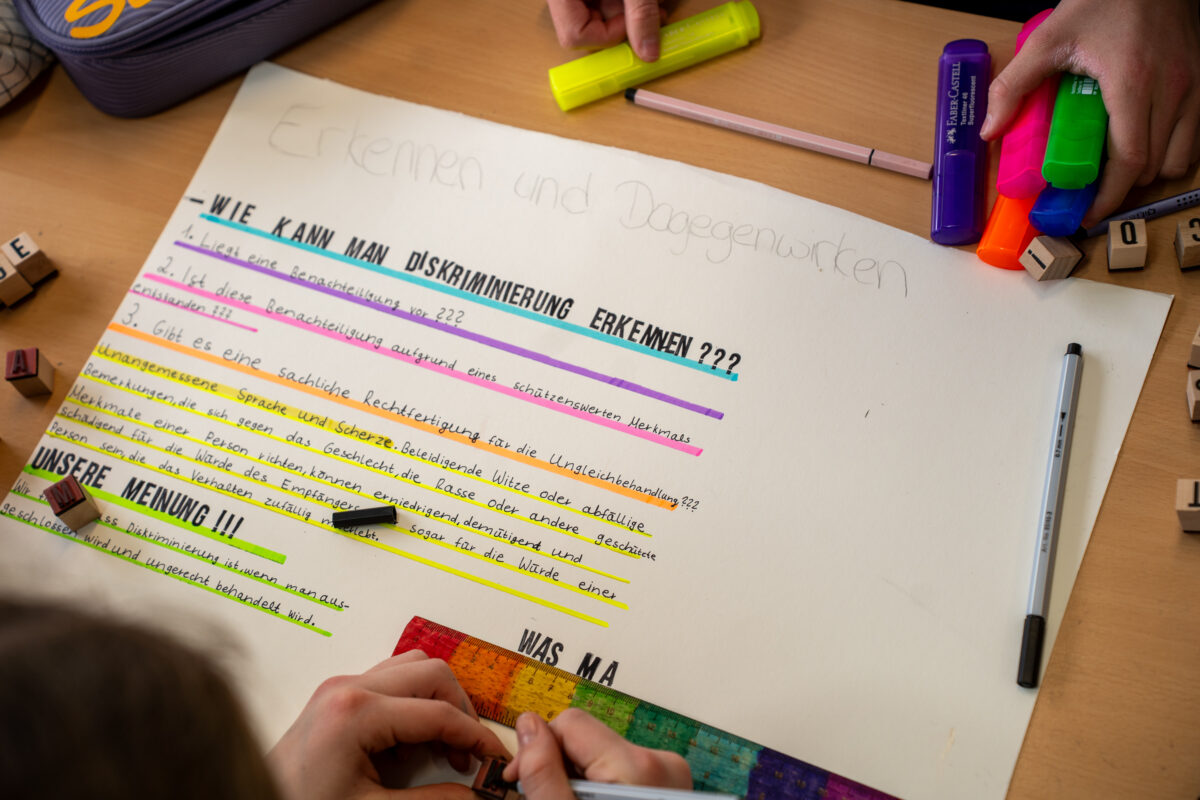 Erkennen und Dagegenwirken
-WIE KANN MAN DISKRIMINIERUNG ERKENNEN???
1. Liegt eine Benachteiligung vor???
2. Ist diese Benachteiligung aufgrund eines schützenswerten Merkmals
entstanden???
3. Gibt es eine sachliche Rechtfertigung für die Ungleichbehandlung???
Unangemessene Sprache und Scherze. Beleidigende Witze oder abfällige
Bemerkungen, die sich gegen das Geschlecht, die Rasse oder andere geschützte
Merkmale einer Person richten, können erniedrigend, demütigend und
schädigend für die Würde des Empfängers sogar für die Würde einer
Person sein, die das Verhalten zufällig
UNSERE MEINUNG!!!
Wir Diskriminierung ist, wenn man aus-
geschlossen wird und ungerecht behandelt wird.
WAS MA
FABER-CASTELL
Textliner 46
Superfluorescent
E
A
M
Q
3